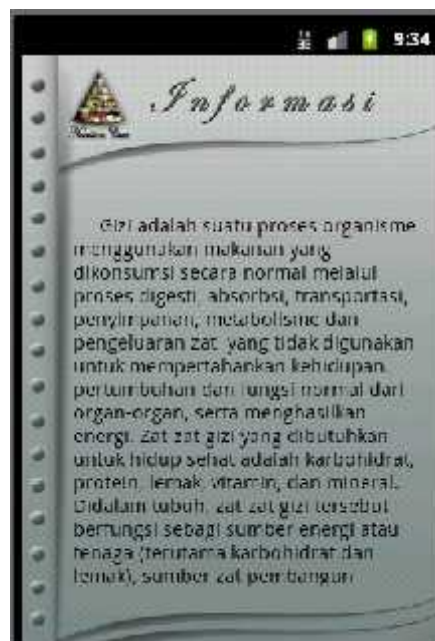 9:34
Informasi
Gizi adalah suatu proses organisme
menggunakan makanan yang
dikonsumsi secara normal melalui
proses digesti, absorbsi, transportasi,
penyimpanan, metabolisme dan
pengeluaran zat yang tidak digunakan
untuk mempertahankan kehidupan,
pertumbuhan dan fungsi normal dari
organ-organ, serta menghasilkan
energi. Zat zat gizi yang dibutuhkan
untuk hidup sehat adalah karbohidrat,
protein, lemak, vitamin, dan mineral.
Didalam tubuh, zat zat gizi tersebut
berfungsi sebagi sumber energi atau
tenaga (terutama karbohidrat dan
lemak), sumber zat pembangun